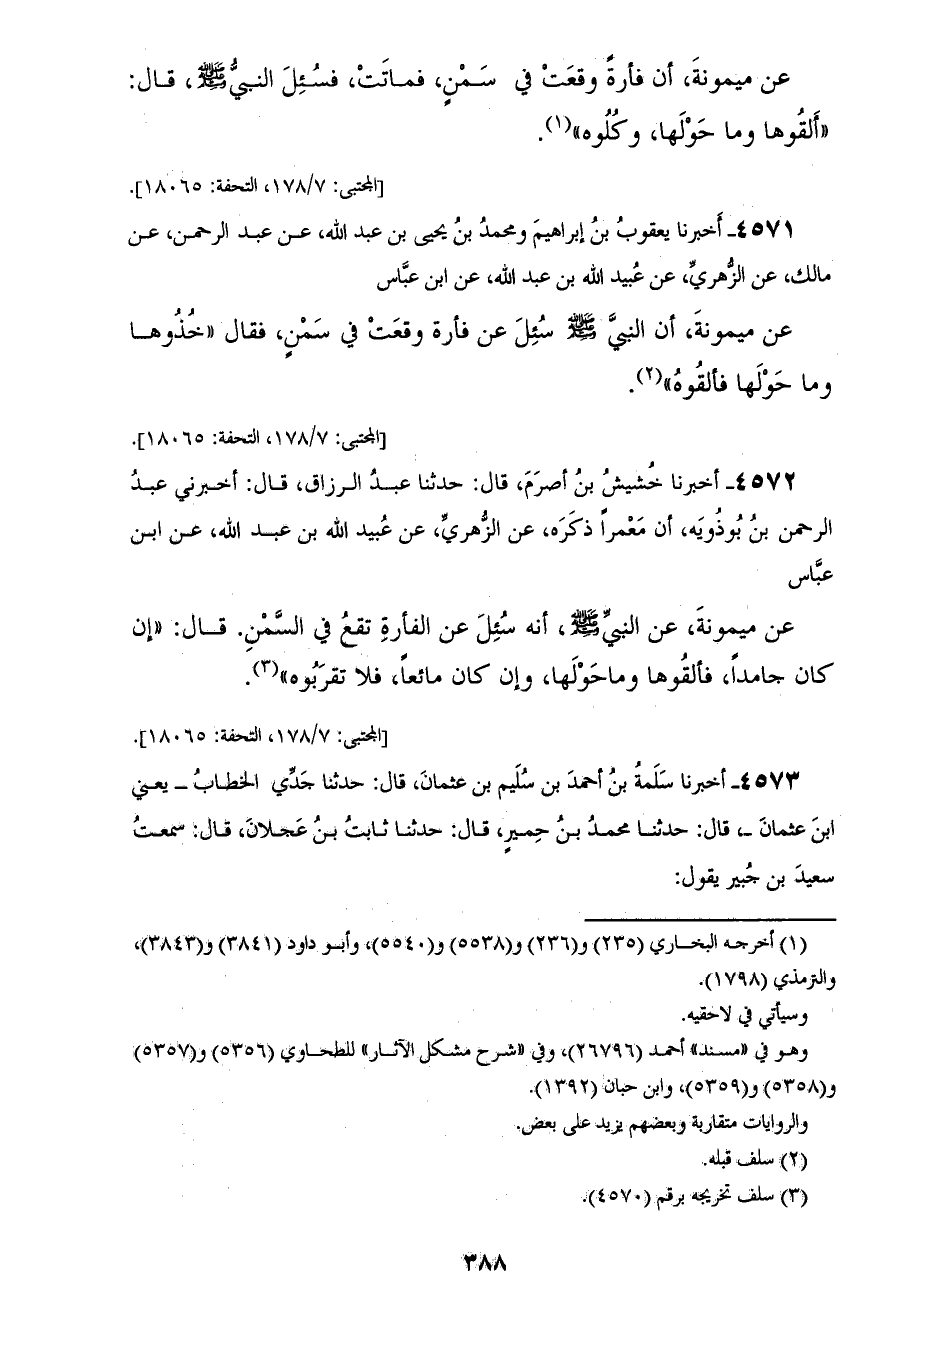 عن ميمونةَ، أن فأرةً وقعَتْ في سَمْنٍ، فماتَتْ، فسُئِلَ النبيُّ ﷺ، قال:
«أَلقُوها وما حَوْلَها، وكُلُوه»(١).
[المجتبى: ١٧٨/٧، التحفة: ١٨٠٦٥].
٤٥٧١ـ أَخبرنا يعقوبُ بنُ إبراهيمَ ومحمدُ بنُ يحيى بن عبد الله، عن عبد الرحمن، عن
مالك، عن الزُّهريِّ، عن عُبيد الله بن عبد الله، عن ابن عبَّاس
عن ميمونةَ، أن النبيَّ ﷺ سُئِلَ عن فأرة وقعَتْ في سَمْنٍ، فقال «خُذُوها
وما حَوْلَها فألقُوهُ»(٢).
[المجتبى: ١٧٨/٧، التحفة: ١٨٠٦٥].
٤٥٧٢ـ أخبرنا خُشيشُ بنُ أصرَمَ، قال: حدثنا عبدُ الرزاق، قال: أخبرني عبدُ
الرحمن بنُ بُوذُويَه، أن مَعْمراً ذكَرَه، عن الزُّهريِّ، عن عُبيد الله بن عبد الله، عن ابن
عبَّاس
عن ميمونةَ، عن النبيِّ ﷺ، أنه سُئِلَ عن الفأرةِ تقعُ في السَّمْنِ. قال: «إن
كان جامداً، فألقُوها وماحَوْلَها، وإن كان مائعاً، فلا تقرَبُوه»(٣).
[المجتبى: ١٧٨/٧، التحفة: ١٨٠٦٥].
٤٥٧٣ـ أخبرنا سَلَمةُ بنُ أحمدَ بن سُلَيم بن عثمانَ، قال: حدثنا جَدِّي الخطابُ ـ يعني
ابنَ عثمانَ ـ، قال: حدثنا محمدُ بنُ حِميرٍ، قال: حدثنا ثابتُ بنُ عَجلانَ، قال: سمعتُ
سعيدَ بن جُبير يقول:
(١) أخرجه البخاري (٢٣٥) و(٢٣٦) و(٥٥٣٨) و(٥٥٤٠)، وأبو داود (٣٨٤١) و(٣٨٤٣)،
والترمذي (١٧٩٨).
وسيأتي في لاحقيه.
وهو في «مسند» أحمد (٢٦٧٩٦)، وفي «شرح مشكل الآثار» للطحاوي (٥٣٥٦) و(٥٣٥٧)
و(٥٣٥٨) و(٥٣٥٩)، وابن حبان (١٣٩٢).
والروايات متقاربة وبعضهم يزيد على بعض.
(٢) سلف قبله.
(٣) سلف تخريجه برقم (٤٥٧٠).
٣٨٨